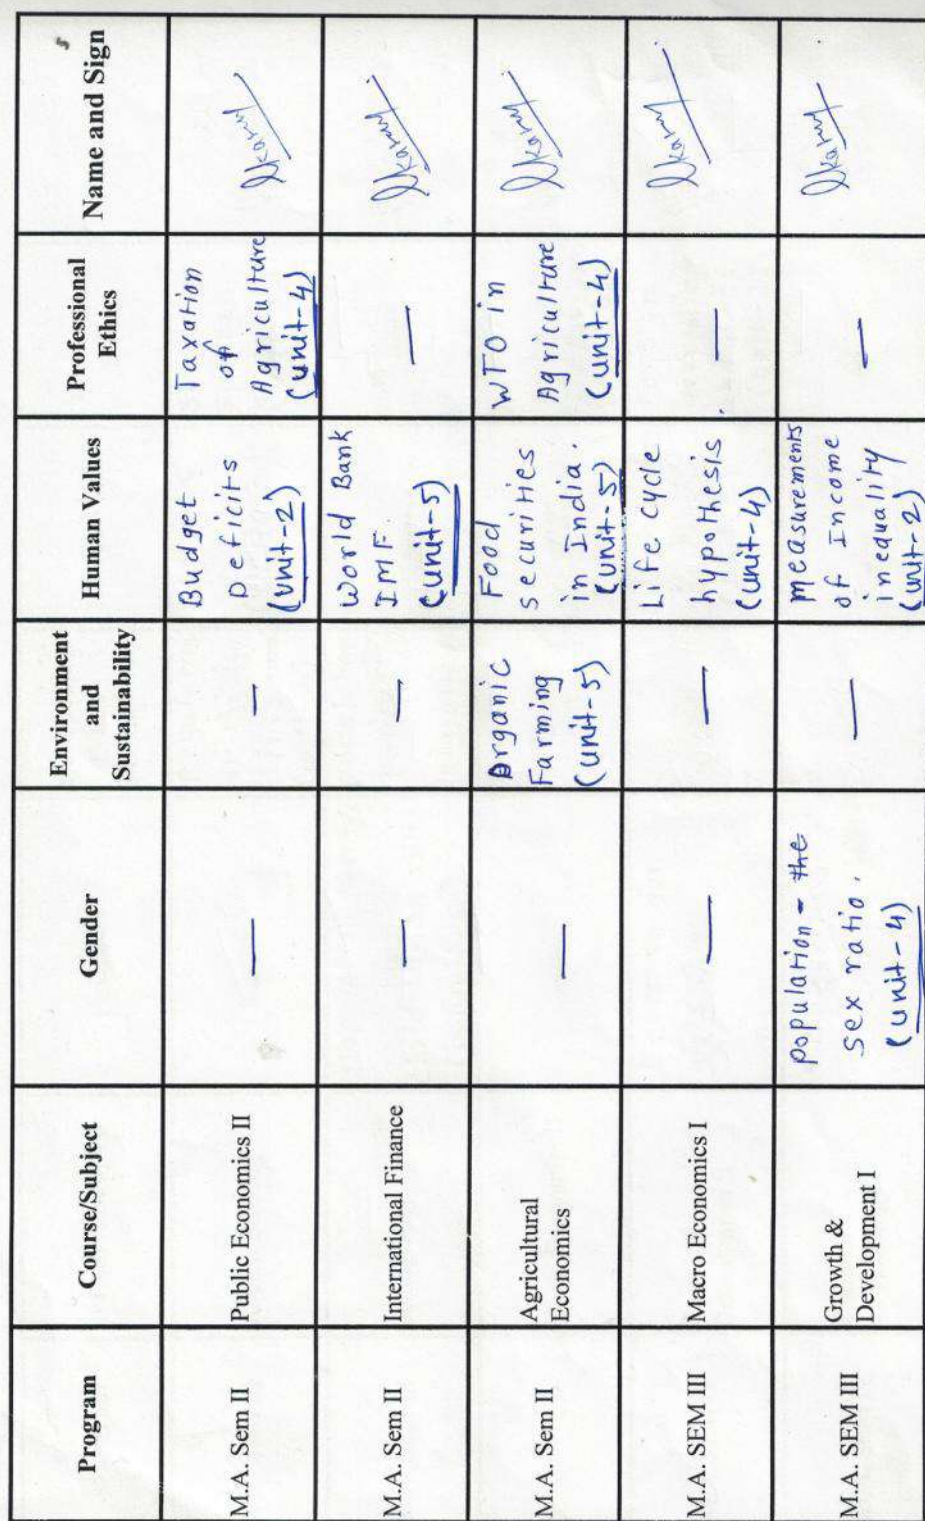 Program
Course/Subject
Gender
Environment
and
Sustainability
Human Values
Professional
Ethics
Name and Sign
M.A. Sem II
Public Economics II
—
—
Budget
Deficits
(unit-2)
Taxation
of
Agriculture
(unit-4)
M.A. Sem II
International Finance
—
—
World Bank
IMF
(unit-5)
—
M.A. Sem II
Agricultural
Economics
—
Organic
Farming
(unit-5)
Food
securities
in India.
(unit-5)
WTO in
Agriculture
(unit-4)
M.A. SEM III
Macro Economics I
—
—
Life cycle
hypothesis
(unit-4)
—
M.A. SEM III
Growth &
Development I
population - the
sex ratio.
(unit-4)
—
measurements
of Income
inequality
(unit-2)
—